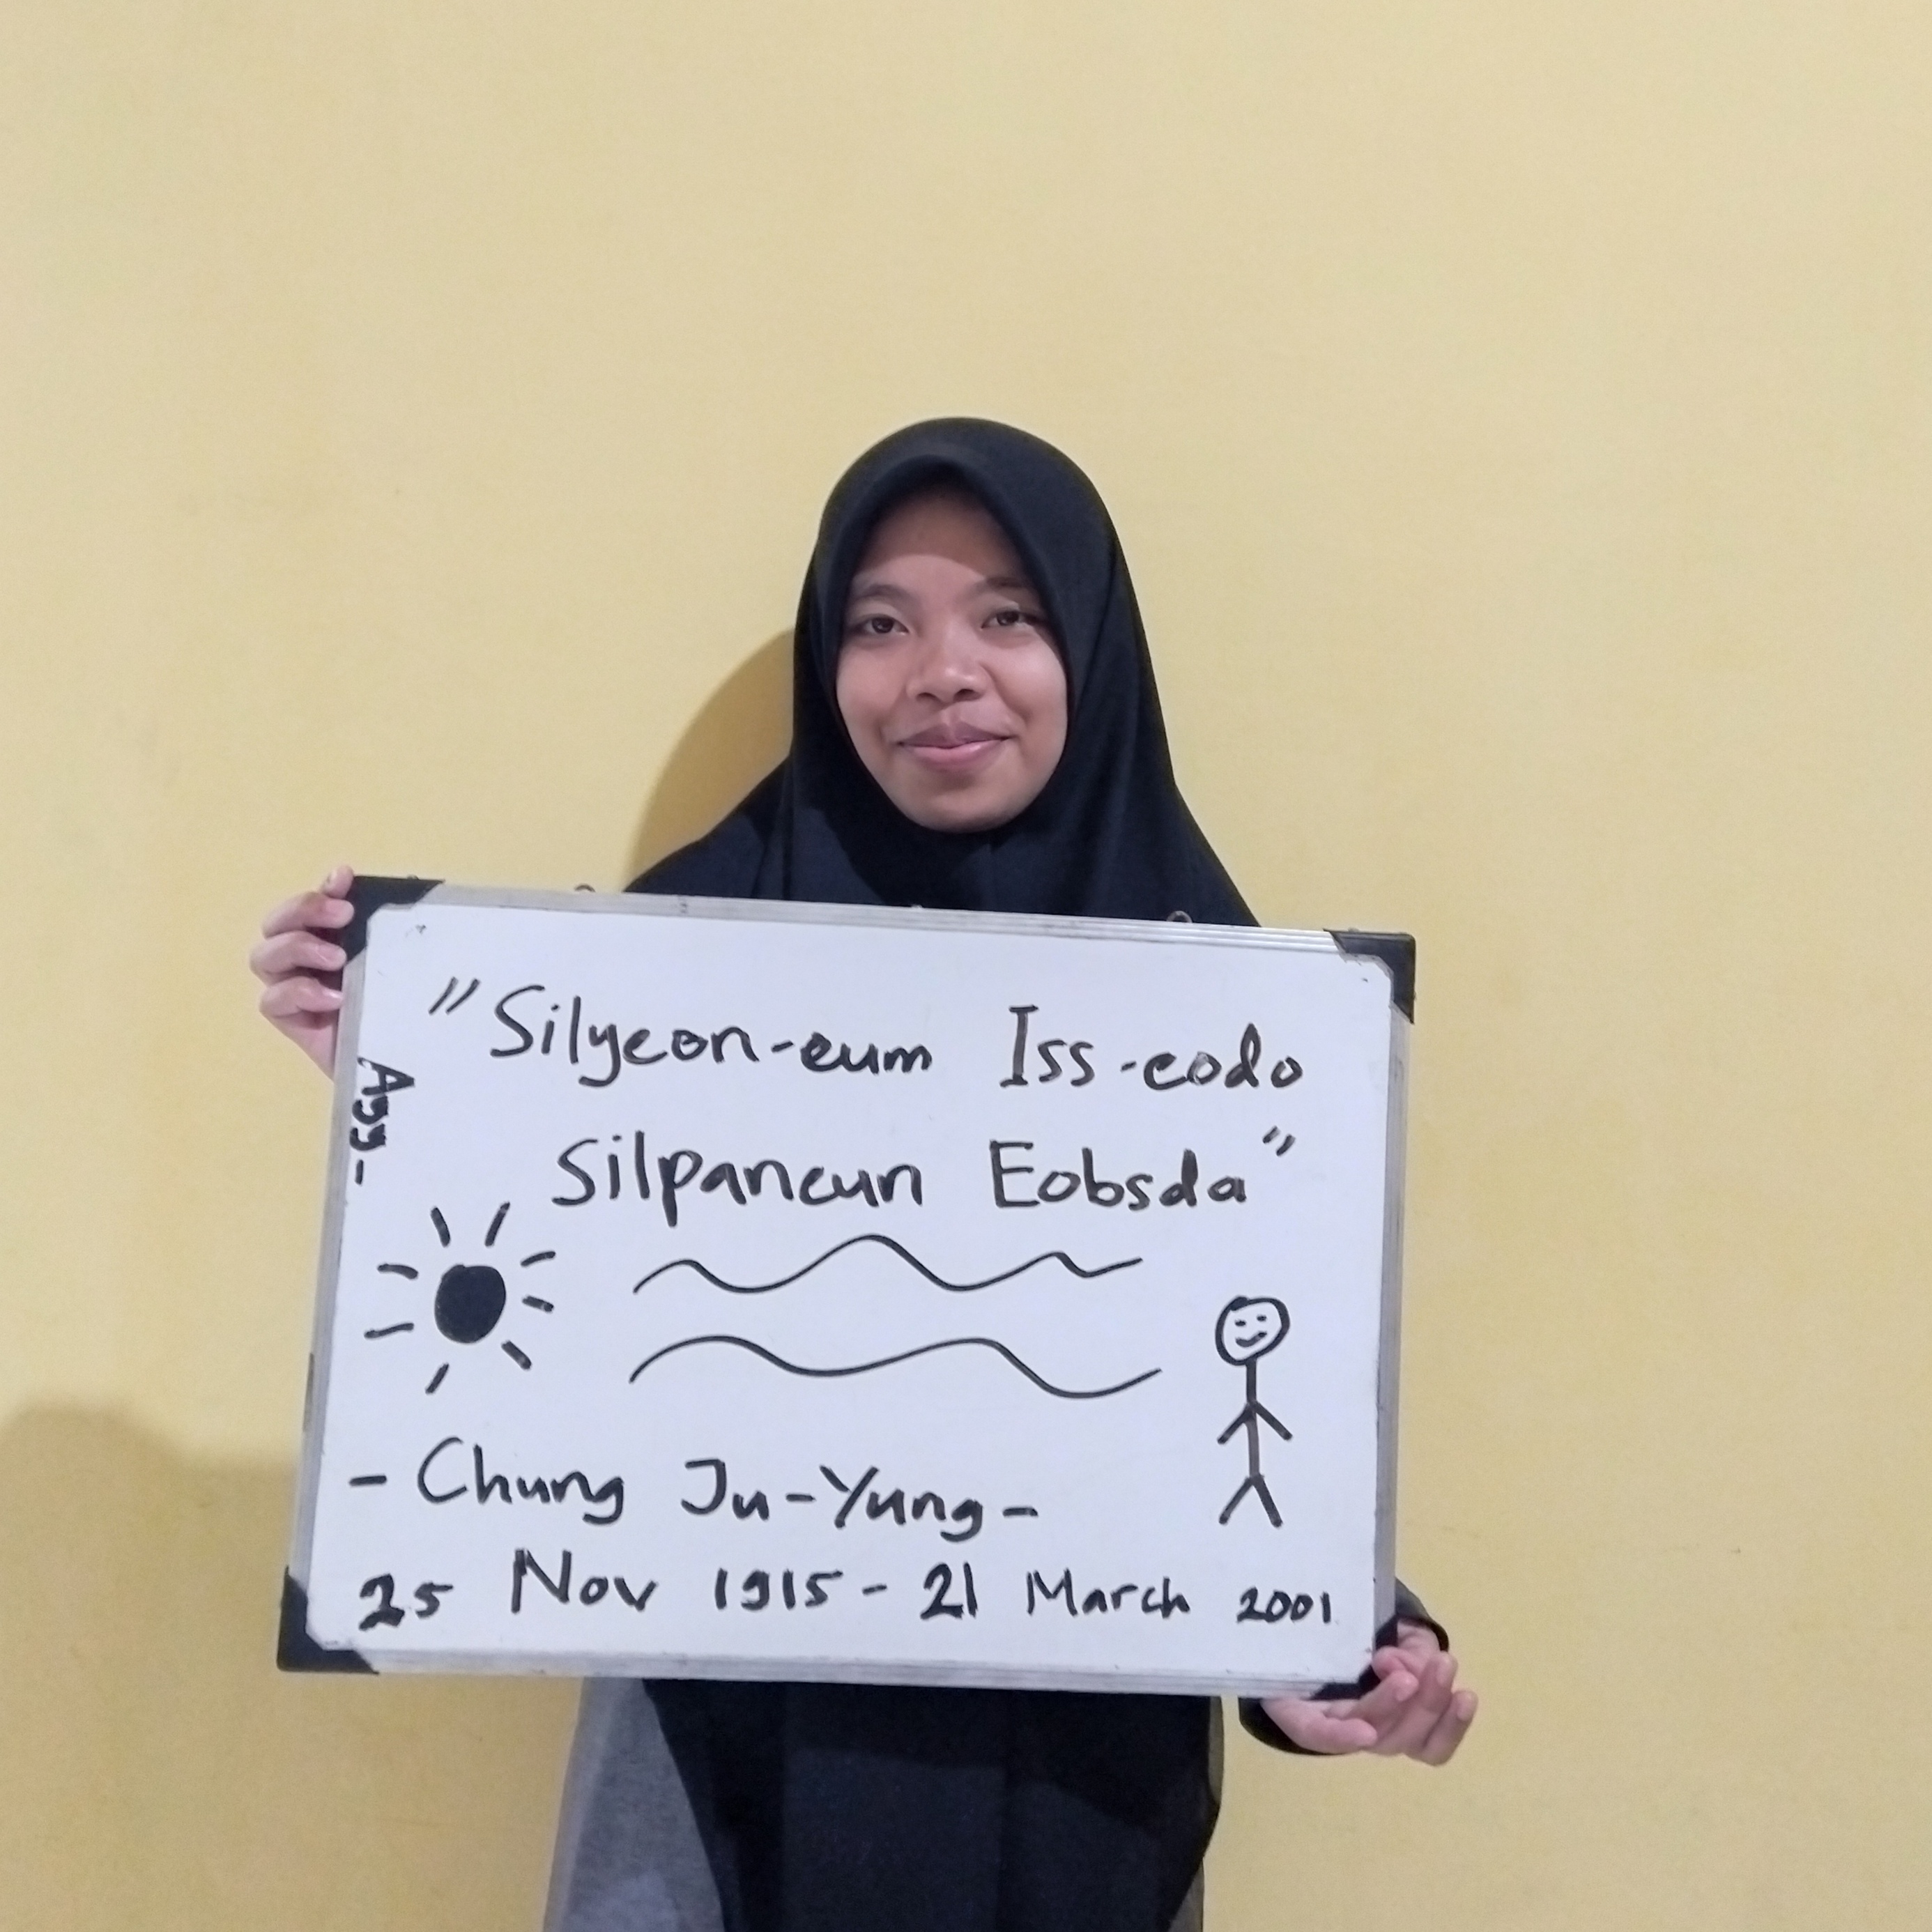 "Silyeon-eum Iss-eodo
Silpaneun Eobsda"
- Chung Ju-Yung -
25 Nov 1915 - 21 March 2001